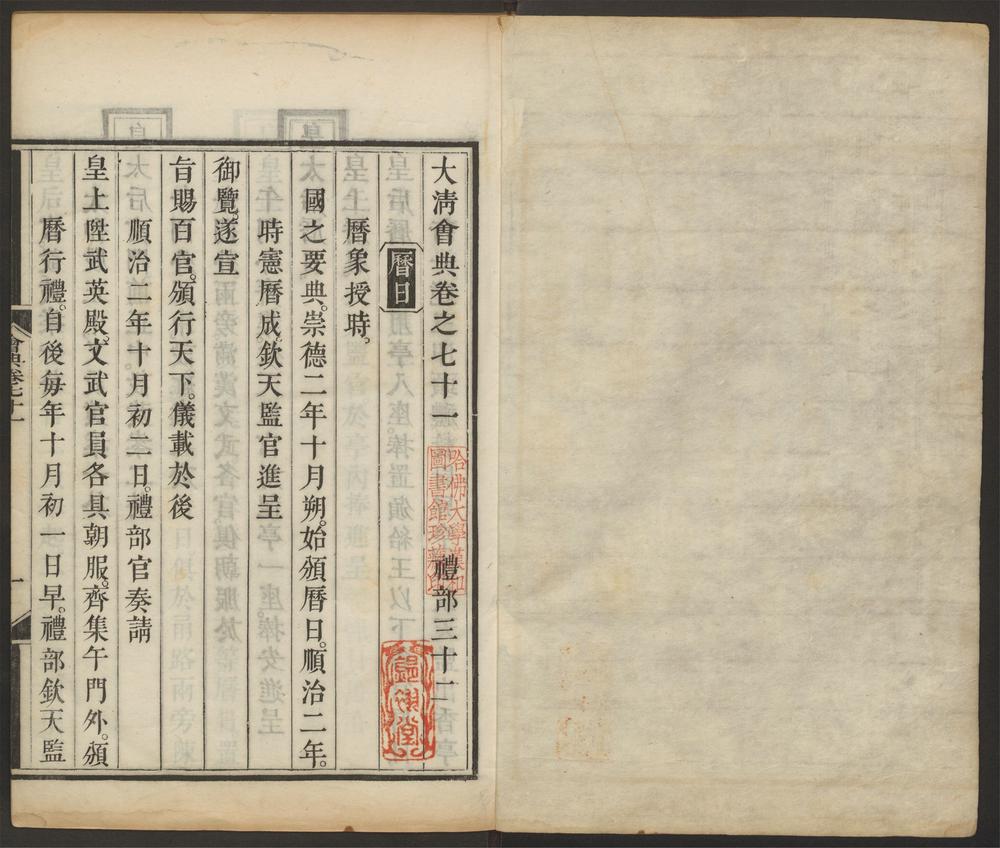 大清會典卷之七十一　禮部三十二
曆日
曆象授時。
國之要典。崇德二年十月朔。始頒曆日。順治二年。
時憲曆成。欽天監官進呈
御覽。遂宣
旨賜百官。頒行天下。儀載於後
順治二年十月初二日。禮部官奏請
皇上陞武英殿。文武官員各具朝服。齊集午門外。頒
曆行禮。自後每年十月初一日早。禮部欽天監
會典卷七十一
一
哈佛大學漢和
圖書館珍藏印